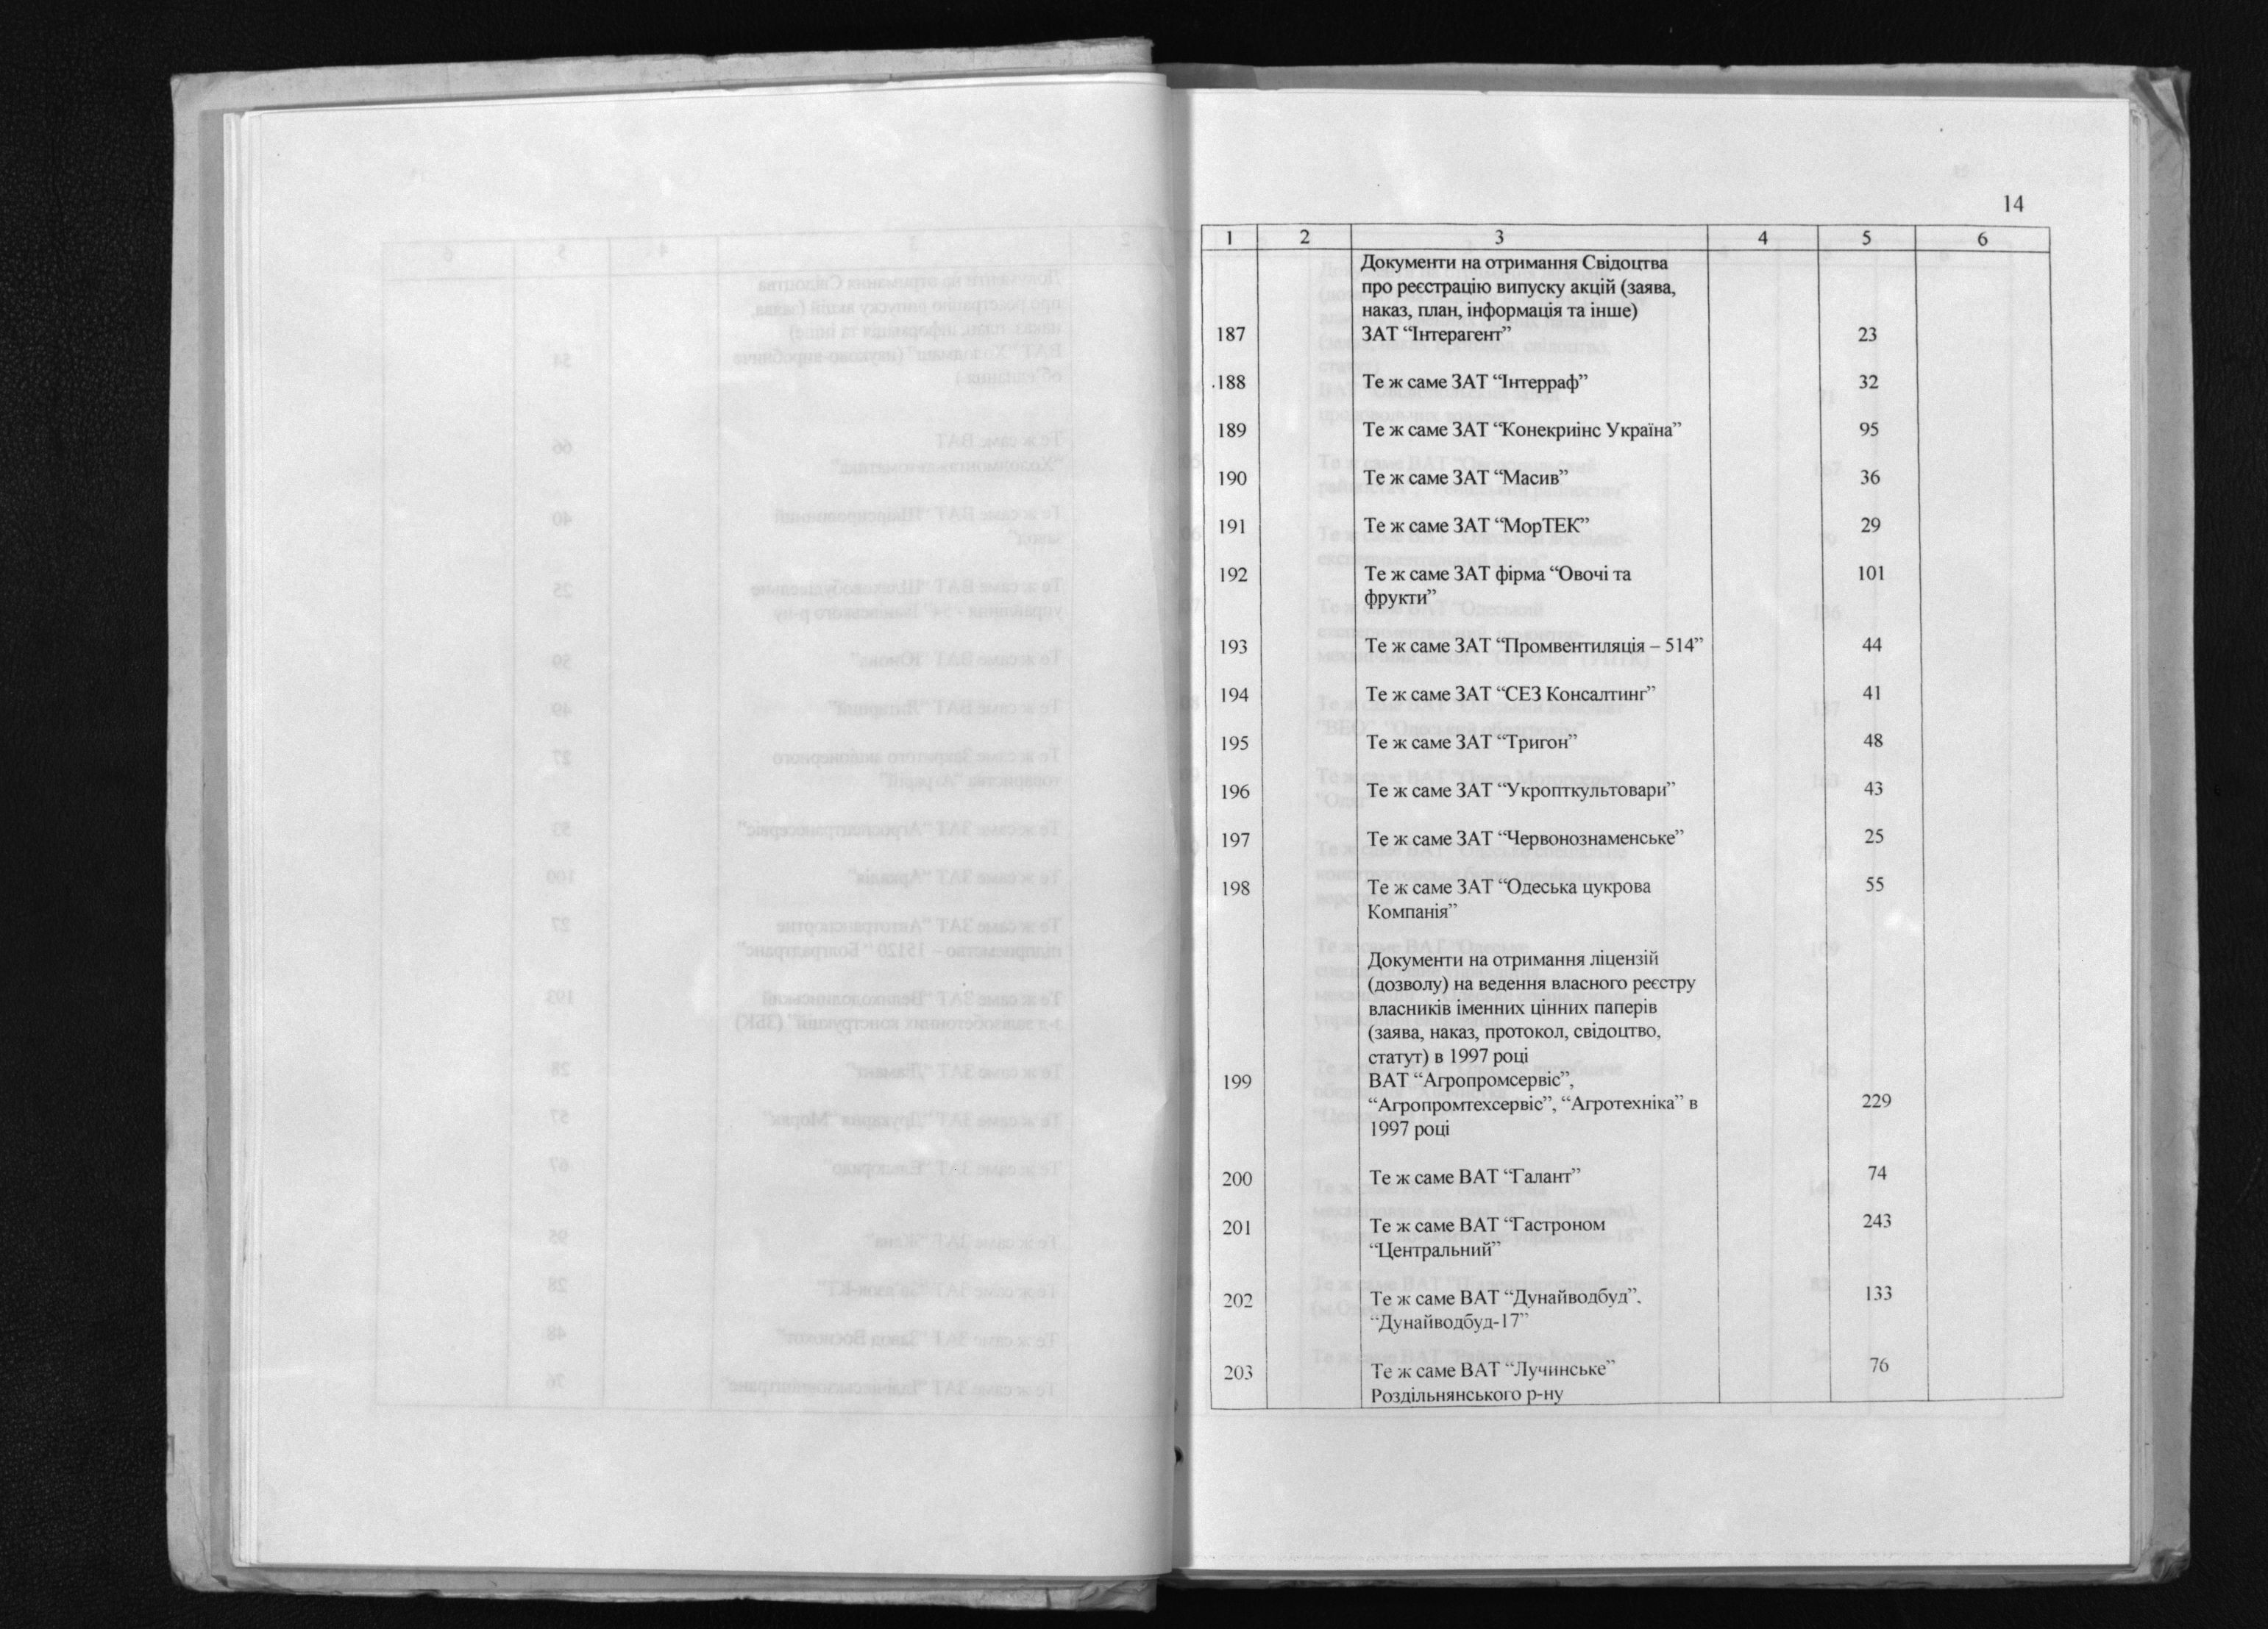 14
1 2 3 4 5 6
Документи на отримання Свідоцтва
про реєстрацію випуску акцій (заява,
наказ, план, інформація та інше)
187 ЗАТ “Інтерагент” 23
188 Те ж саме ЗАТ “Інтерраф” 32
189 Те ж саме ЗАТ “Конекриінс Україна” 95
190 Те ж саме ЗАТ “Масив” 36
191 Те ж саме ЗАТ “МорТЕК” 29
192 Те ж саме ЗАТ фірма “Овочі та 101
фрукти”
193 Те ж саме ЗАТ “Промвентиляція – 514” 44
194 Те ж саме ЗАТ “СЕЗ Консалтинг” 41
195 Те ж саме ЗАТ “Тригон” 48
196 Те ж саме ЗАТ “Укропткультовари” 43
197 Те ж саме ЗАТ “Червонознаменське” 25
198 Те ж саме ЗАТ “Одеська цукрова 55
Компанія”
Документи на отримання ліцензій
(дозволу) на ведення власного реєстру
власників іменних цінних паперів
(заява, наказ, протокол, свідоцтво,
статут) в 1997 році
199 ВАТ “Агропромсервіс”,
“Агропромтехсервіс”, “Агротехніка” в 229
1997 році
200 Те ж саме ВАТ “Галант” 74
201 Те ж саме ВАТ “Гастроном 243
“Центральний”
202 Те ж саме ВАТ “Дунайводбуд”, 133
“Дунайводбуд-17”
203 Те ж саме ВАТ “Лучинське” 76
Роздільнянського р-ну